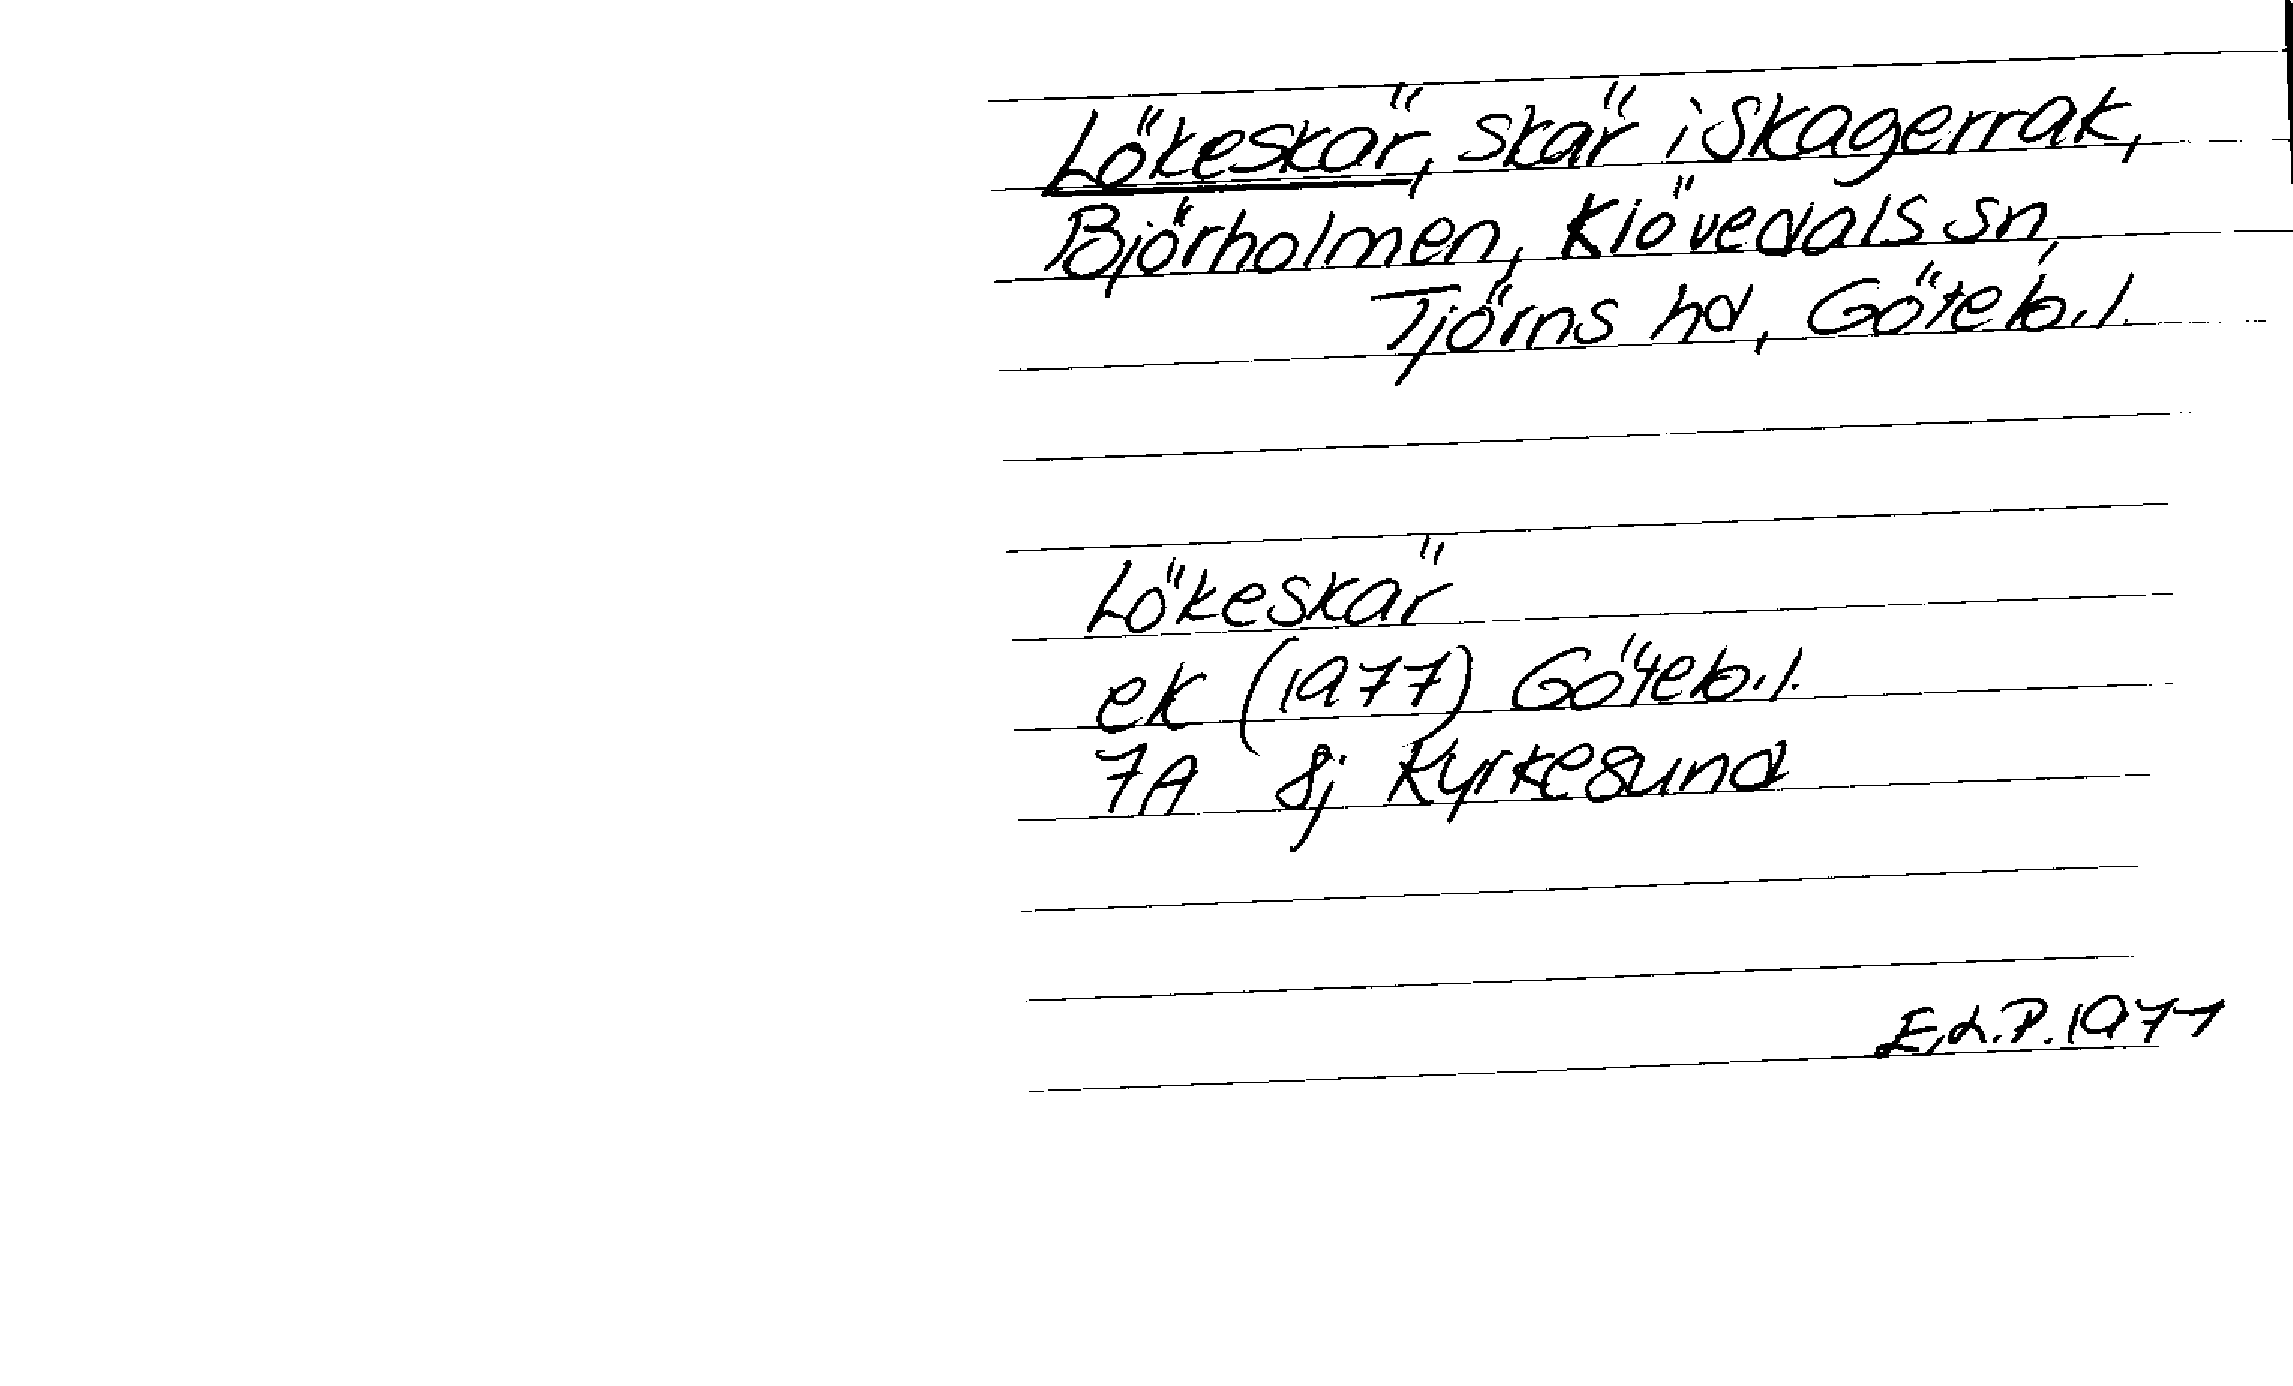 Lökeskär, skär i Skagerrak,
Björholmen, Klövedals sn,
Tjörns hd, Göteb.l.
Lökeskär
ek (1977) Göteb.l.
7A 8j Kyrkesund
E.L.P. 1977